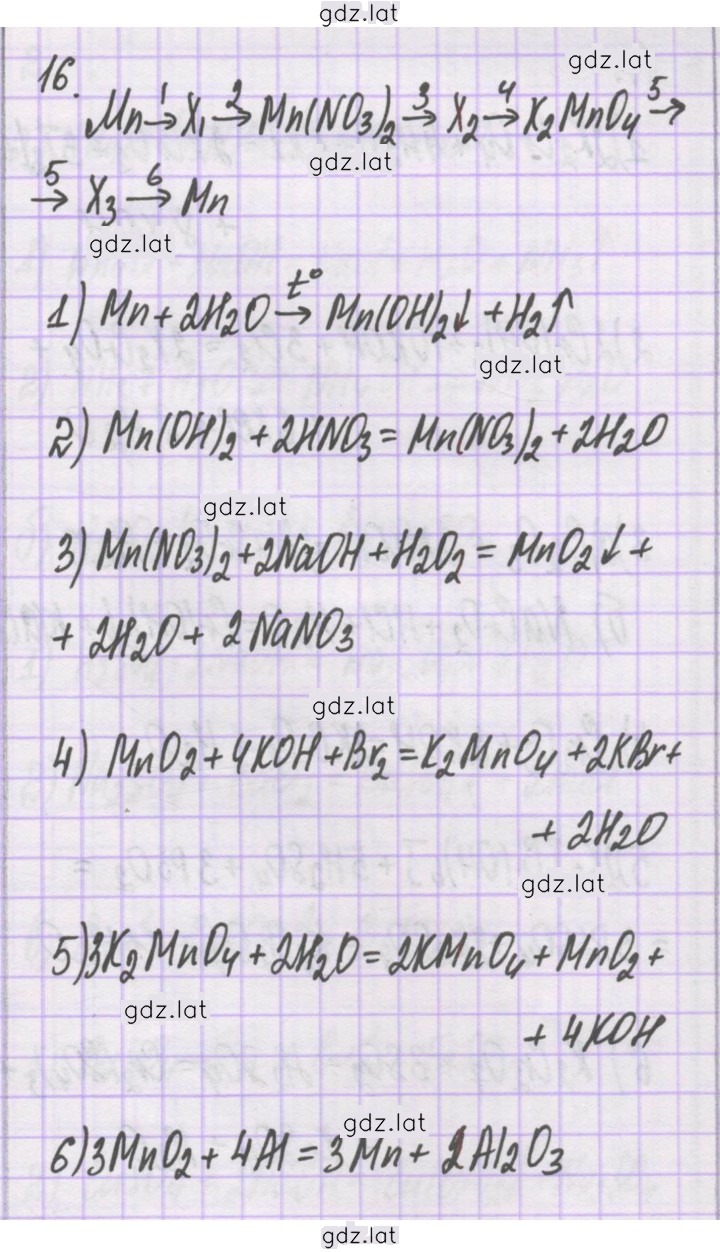 gdz.lat
gdz.lat
16.
Mn →¹ X₁ →² Mn(NO₃)₂ →³ X₂ →⁴ K₂MnO₄ →⁵
gdz.lat
→⁵ X₃ →⁶ Mn
gdz.lat
1) Mn + 2H₂O →t° Mn(OH)₂↓ + H₂↑
gdz.lat
2) Mn(OH)₂ + 2HNO₃ = Mn(NO₃)₂ + 2H₂O
gdz.lat
3) Mn(NO₃)₂ + 2NaOH + H₂O₂ = MnO₂↓ +
+ 2H₂O + 2NaNO₃
gdz.lat
4) MnO₂ + 4KOH + Br₂ = K₂MnO₄ + 2KBr +
+ 2H₂O
gdz.lat
5) 3K₂MnO₄ + 2H₂O = 2KMnO₄ + MnO₂ +
gdz.lat
+ 4KOH
gdz.lat
6) 3MnO₂ + 4Al = 3Mn + 2Al₂O₃
gdz.lat